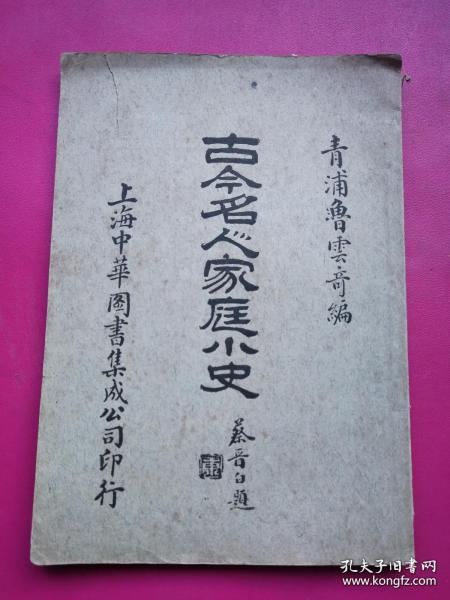 青浦魯雲奇編
古今名人家庭小史
蔡晋白題
上海中華圖書集成公司印行
孔夫子旧书网
www.kongfz.com